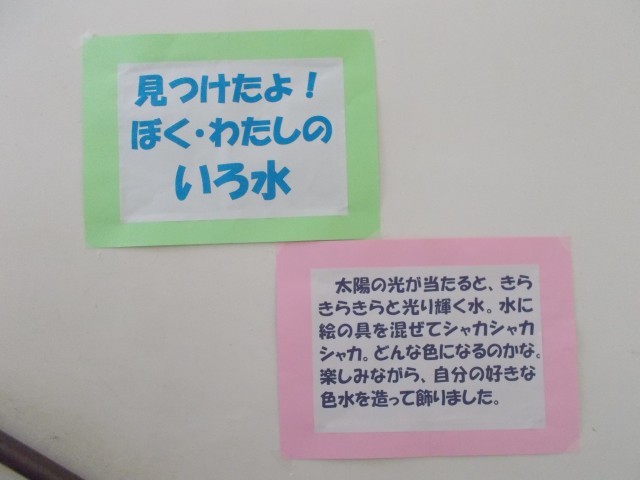 見つけたよ！
ぼく・わたしの
いろ水
太陽の光が当たると、きら
きらきらと光り輝く水。水に
絵の具を混ぜてシャカシャカ
シャカ。どんな色になるのかな。
楽しみながら、自分の好きな
色水を造って飾りました。